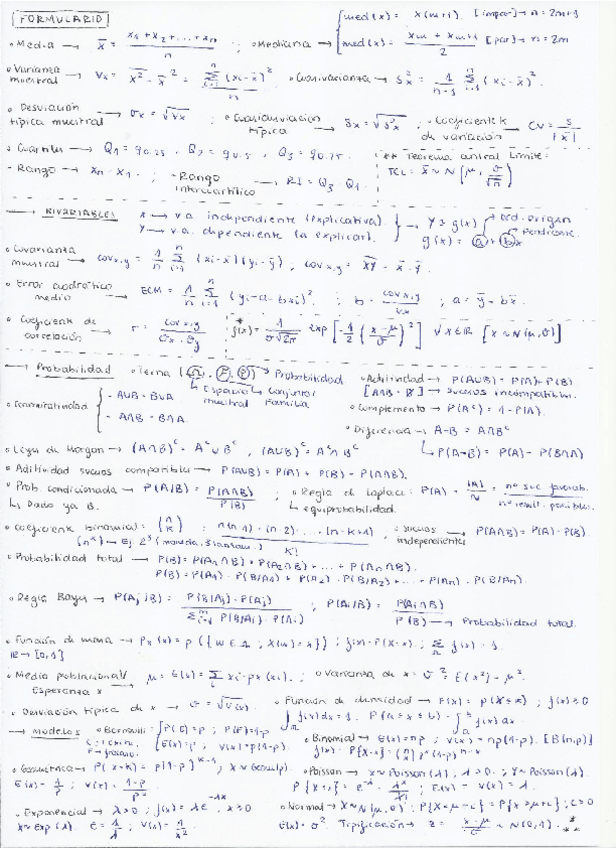 FORMULARIO
• Media → x̄ = (x1 + x2 + ... + xn) / n ; • Mediana → { med(x) = x(m+1) [impar] → n = 2m+1
med(x) = (xm + xm+1) / 2 [par] → n = 2m
• Varianza muestral → Vx = x̄² - x̄² = Σ(xi - x̄)² / n • Cuasivarianza → S²x = 1/(n-1) Σ (xi - x̄)²
• Desviación típica muestral → σx = √Vx ; • Cuasidesviación típica → Sx = √S²x ; • Coeficiente de variación → CV = s / |x̄|
• Cuartiles → Q1 = q0.25 , Q2 = q0.5 , Q3 = q0.75
** Teorema central límite:
- Rango → xn - x1 ; - Rango intercuartílico → RI = Q3 - Q1
TCL = x̄ ~ N(μ, σ/√n)
→ BIVARIABLES x → v.a. independiente (explicativa)
y → v.a. dependiente (a explicar) } → Y ≈ g(x)
g(x) = a + bx ord. origen pendiente
• Covarianza muestral → cov x,y = 1/n Σ (xi - x̄)(yi - ȳ) ; cov x,y = x̄ȳ - x̄ · ȳ
• Error cuadrático medio → ECM = 1/n Σ (yi - a - bxi)² ; b = cov x,y / vx ; a = ȳ - bx̄
• Coeficiente de correlación → r = cov x,y / (σx · σy)
* f(x) = 1/(σ√2π) exp[-1/2 ((x-μ)/σ)²] ∀x∈ℝ [x ~ N(μ,σ)]
→ Probabilidad • Terna (Ω, F, P) → Probabilidad
Espacio muestral Conjunto Familia
• Aditividad → P(A∪B) = P(A) + P(B)
[A∩B = Ø] → sucesos incompatibles
• Conmutatividad { - A∪B = B∪A
- A∩B = B∩A
• Complemento → P(Aᶜ) = 1 - P(A)
• Diferencia → A - B = A∩Bᶜ
↳ P(A-B) = P(A) - P(B∩A)
• Leyes de Morgan → (A∩B)ᶜ = Aᶜ∪Bᶜ , (A∪B)ᶜ = Aᶜ∩Bᶜ
• Aditividad sucesos compatibles → P(A∪B) = P(A) + P(B) - P(A∩B)
• Prob. condicionada → P(A|B) = P(A∩B) / P(B) ; • Regla de Laplace: P(A) = |A|/N = nº suc. favorab. / nº result. posibles
↳ Dado ya B. ↳ equiprobabilidad
• Coeficiente binomial = (n k) = n(n-1)·(n-2)·...·(n-k+1) / k! ; • sucesos independientes → P(A∩B) = P(A)·P(B)
• Probabilidad total → P(B) = P(A1∩B) + P(A2∩B) + ... + P(An∩B)
P(B) = P(A1)·P(B|A1) + P(A2)·P(B|A2) + ... + P(An)·P(B|An)
• Regla Bayes → P(Aj|B) = P(B|Aj)·P(Aj) / Σ P(B|Ai)·P(Ai) ; P(Ai|B) = P(Ai∩B) / P(B) → Probabilidad total.
• Función de masa → Px(x) = P({w∈Ω ; X(w)=x}) ; f(x) = P(X=x) ; Σ f(x) = 1
ℝ → [0,1]
• Media poblacional / Esperanza x → μ = E(x) = Σ xi·px(xi) ; • Varianza de x = σ² = E(x²) - μ²
• Desviación típica de x → σ = √V(x) • Función de densidad → F(x) = P(X≤x) ; f(x) ≥ 0
∫ f(x)dx = 1. P(a≤x≤b) = ∫ f(x)dx
→ Modelos • Bernoulli = { P(E) = p ; P(F) = 1-p
E(x) = p ; V(x) = p(1-p)
• Binomial → E(x) = np ; V(x) = np(1-p) [B(n,p)]
f(x) = P{X=x} = (n x) pˣ (1-p)ⁿ⁻ˣ
• Geométrica → P(x=k) = p(1-p)ᵏ⁻¹, x ~ Geom(p)
E(x) = 1/p ; V(x) = (1-p)/p²
• Poisson → x ~ Poisson(λ), λ>0
E(x) = V(x) = λ
• Exponencial → λ>0 ; f(x) = λe^(-λx), x≥0
x ~ Exp(λ). E = 1/λ ; V(x) = 1/λ²
• Normal → X ~ N(μ,σ)
Tipificación → z = (x-μ)/σ ~ N(0,1). * **